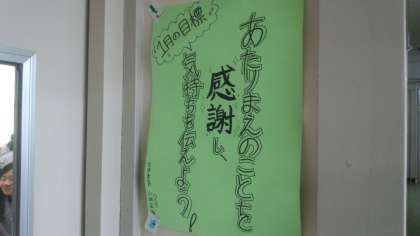 1月の目標
あたりまえのことを
感謝し、
気持ちを伝えよう!